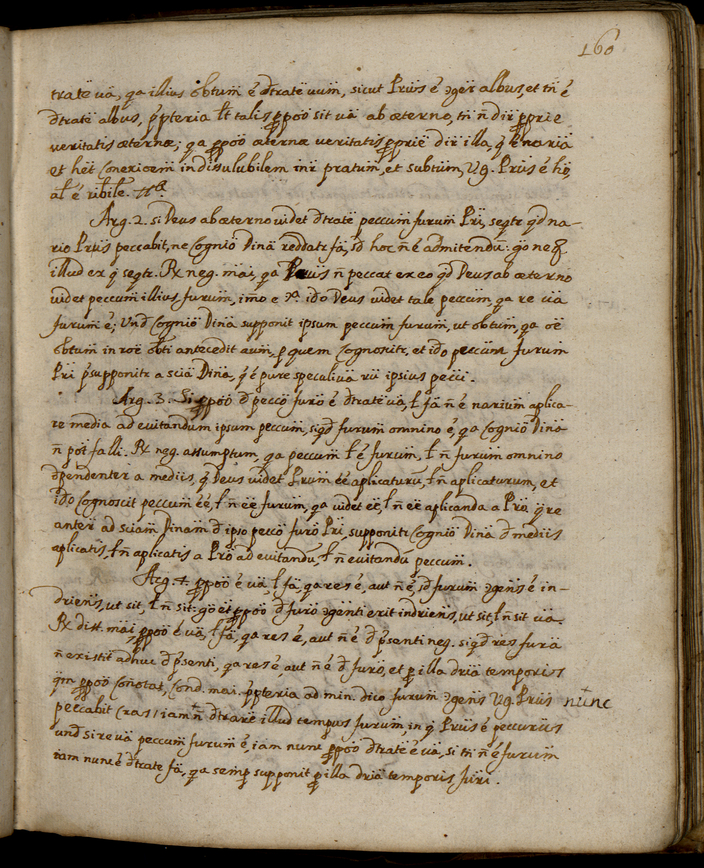 160
tratë vä, qa illius obtum̈ é dtratë vum̈, sicut Prüs é ɔgër albus, et tn̈ é
dtratë albus, ppteria lt talis ppoö sit vä ab æterno, tn̈ n̈ dir̈ pprie
veritatis æternæ; qa ppoö æternæ veritatis pprie dir̈ illa, q̈ é naria
et het Conexioem̈ indissulubilem inr̈ pratum̈, et subtum̈, Vg. Prüs é hö,
al é ribile.
Arg. 2. si Deus ab æterno videt dtratë peccum̈ furum̈ Pri, seqtr qd na-
rio Prüs peccabit, ne Cognio Dina reddatr fä, sd hoc n̈ é admitendum̈: gö neq
illud ex q̈ seqtr. Rx neg. mai, qa Prüis n̈ peccat ex eo qd Deus ab æterno
videt peccum̈ illius furum̈, imo e ido Deus videt tale peccum̈, qa re vïa
furum̈ é; Und Cognio Dina supponit ipsum peccum̈ furum̈, ut obtum̈, qa oë
obtum̈ in roë obti antecedit aum̈, p quem Cognoscitr, et ido peccum furum̈
Pri psupponitr a scia Dina, q̈ é pure speculiva ipsius pecci.
Arg. 3. Si ppoö d pecco furo é dtratë vä, l fä n̈ é narium̈ aplica-
re media ad evitandum̈ ipsum peccum̈, siqd furum̈ omnino é, qa Cognio Dina
n̈ pöt falli. Rx neg. assumptum, qa peccum̈ l é furum̈, l n̈ furum̈ omnino
dpendenter a mediis, q̈ Deus videt Prum̈ eë aplicaturü, l n̈ aplicaturum, et
ido Cognoscit peccum̈ eë, l n̈ eë furum̈, qa videt eë, l n̈ eë aplicanda a Pro, q̈re
anter ad sciam̈ Dinam̈ d ipso pecco furo Pri, supponitr Cognio Dina d mediis
aplicatis, l n̈ aplicatis a Pro ad evitandü, l n̈ evitandü peccum̈.
Arg. 4. ppoö é vä, l fä, qa res é, aut n̈ é, sd furum̈ ɔgens é in-
driens, ut sit, l n̈ sit: gö et ppoö d furo ɔgenti erit indriens, ut sit, l n̈ sit vä.
Rx dist. mai, ppoö é vä, l fä, qa res é, aut n̈ é d psenti neg. siqd res fura
n̈ existit adhuc d psenti, qa res é, aut n̈ é d furo, et p illa dria temporis
qm̈ ppoö Coñotat, Cond. mai. ppteria ad min. dico furum̈ ɔgens Vg. Prüs
peccabit Cras, iam n̈ dtrare illud tempus furum̈, in q̈ Prüs é peccurus
nunc
und si re vä peccum̈ furum̈ é, iam nunc ppoö dtratë é vä, si tn̈ n̈ é furum̈
iam nunc é dtratë fä, qa semp supponit p illa dria temporis furi.